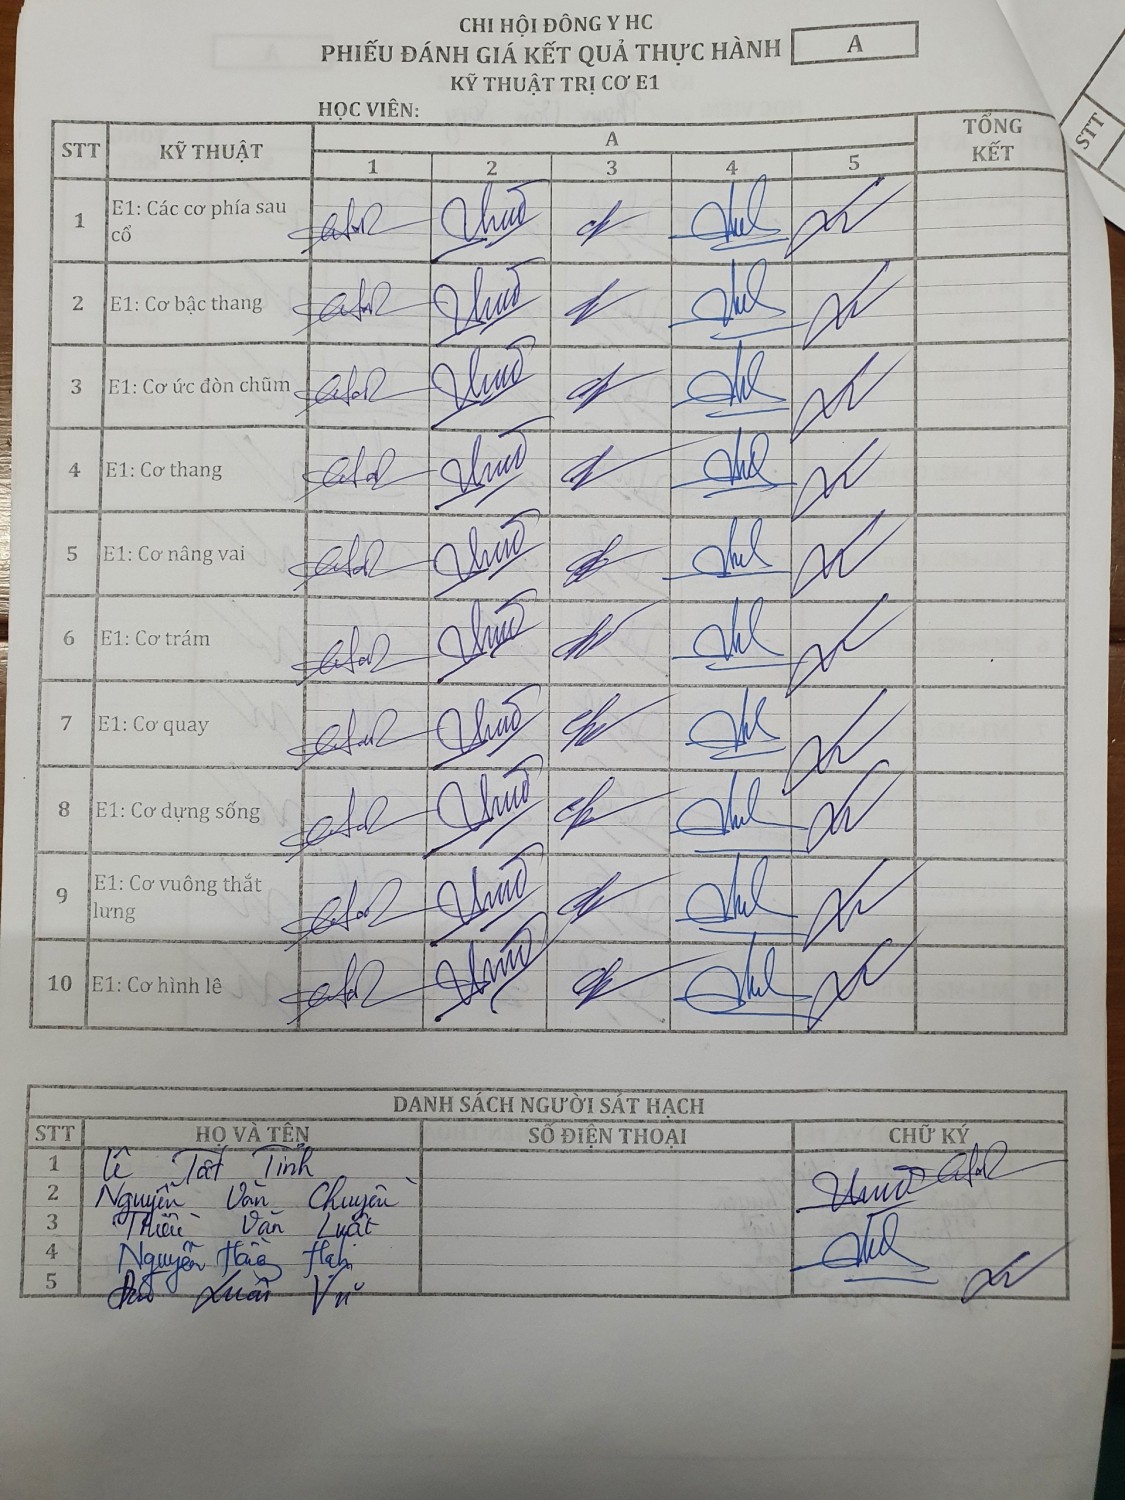 CHI HỘI ĐÔNG Y HC
PHIẾU ĐÁNH GIÁ KẾT QUẢ THỰC HÀNH A
KỸ THUẬT TRỊ CƠ E1
HỌC VIÊN:
STT KỸ THUẬT A TỔNG KẾT
1 2 3 4 5
1 E1: Các cơ phía sau
cổ
2 E1: Cơ bậc thang
3 E1: Cơ ức đòn chũm
4 E1: Cơ thang
5 E1: Cơ nâng vai
6 E1: Cơ trám
7 E1: Cơ quay
8 E1: Cơ dựng sống
9 E1: Cơ vuông thắt
lưng
10 E1: Cơ hình lê
DANH SÁCH NGƯỜI SÁT HẠCH
STT HỌ VÀ TÊN SỐ ĐIỆN THOẠI CHỮ KÝ
1 Lê Tất Tính
2 Nguyễn Văn Chuyền
3 Thiều Văn Luật
4 Nguyễn
5 Xuân Vũ
STT